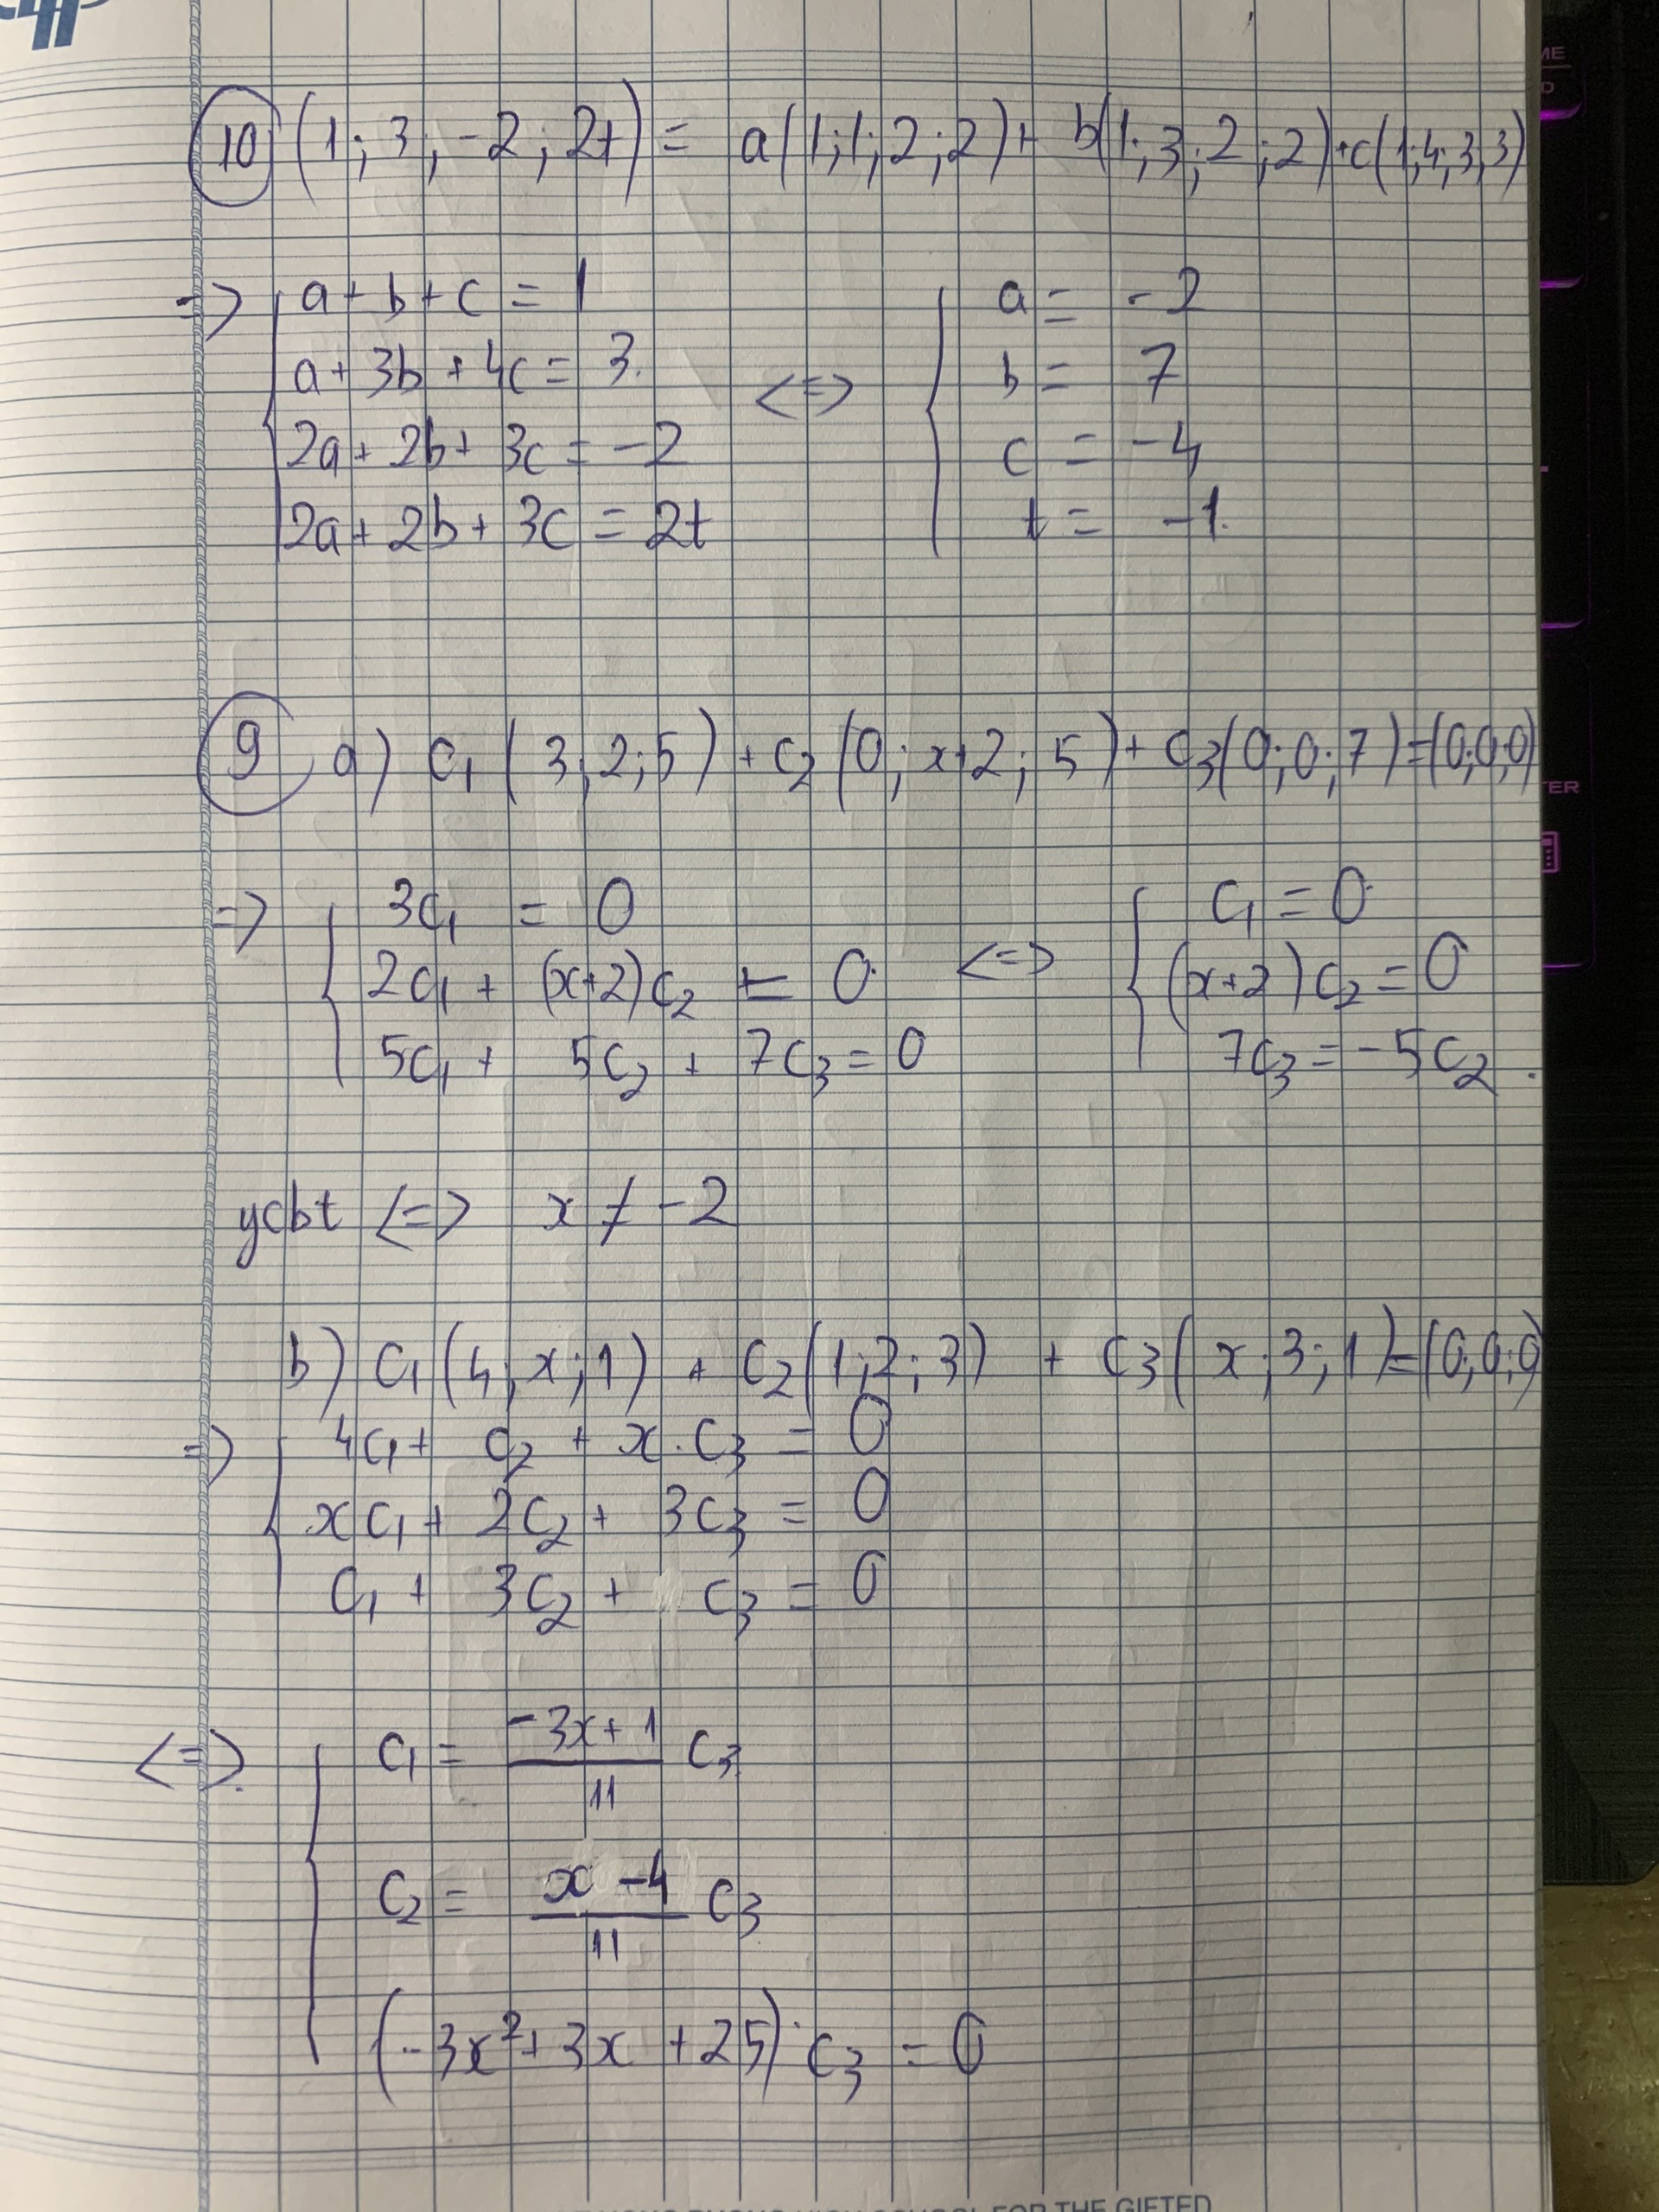 10 (1; 3; -2; 2t) = a(1;1;2;2) + b(1;3;2;2) + c(1;4;3;3)
=> a + b + c = 1
a + 3b + 4c = 3.
2a + 2b + 3c = -2
2a + 2b + 3c = 2t
<=> a = -2
b = 7
c = -4
t = -1.
9 a) c₁(3;2;5) + c₂(0; x+2; 5) + c₃(0;0;7) = (0;0;0)
=> 3c₁ = 0
2c₁ + (x+2)c₂ = 0
5c₁ + 5c₂ + 7c₃ = 0
<=> c₁ = 0
(x+2)c₂ = 0
7c₃ = -5c₂.
ycbt <=> x ≠ -2
b) c₁(4;x;1) + c₂(1;2;3) + c₃(x;3;1) = (0;0;0)
=> 4c₁ + c₂ + x.c₃ = 0
xc₁ + 2c₂ + 3c₃ = 0
c₁ + 3c₂ + c₃ = 0
<=> c₁ = (-3x+1)/11 c₃
c₂ = (x-4)/11 c₃
(-3x² + 3x + 25).c₃ = 0
FOR THE GIFTED